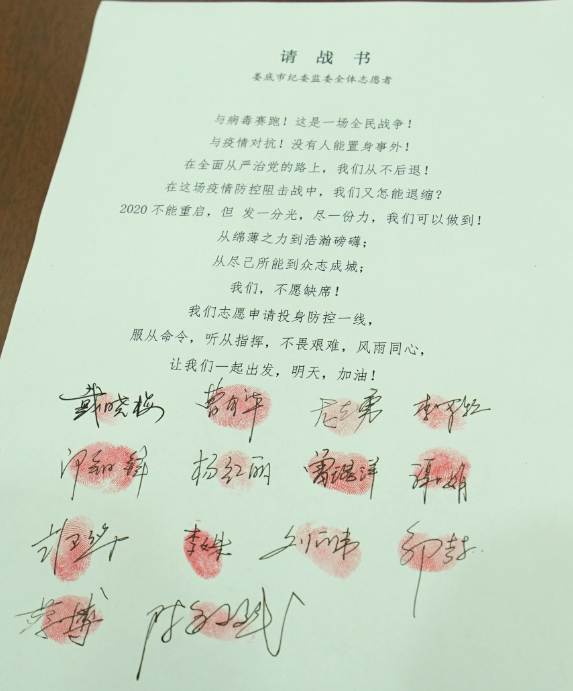 请战书
娄底市纪委监委全体志愿者
与病毒赛跑！这是一场全民战争！
与疫情对抗！没有人能置身事外！
在全面从严治党的路上，我们从不后退！
在这场疫情防控阻击战中，我们又怎能退缩？
2020 不能重启，但 发一分光，尽一份力，我们可以做到！
从绵薄之力到浩瀚磅礴；
从尽己所能到众志成城；
我们，不愿缺席！
我们志愿申请投身防控一线，
服从命令，听从指挥，不畏艰难，风雨同心，
让我们一起出发，明天，加油！
戴晓梅
杨红丽